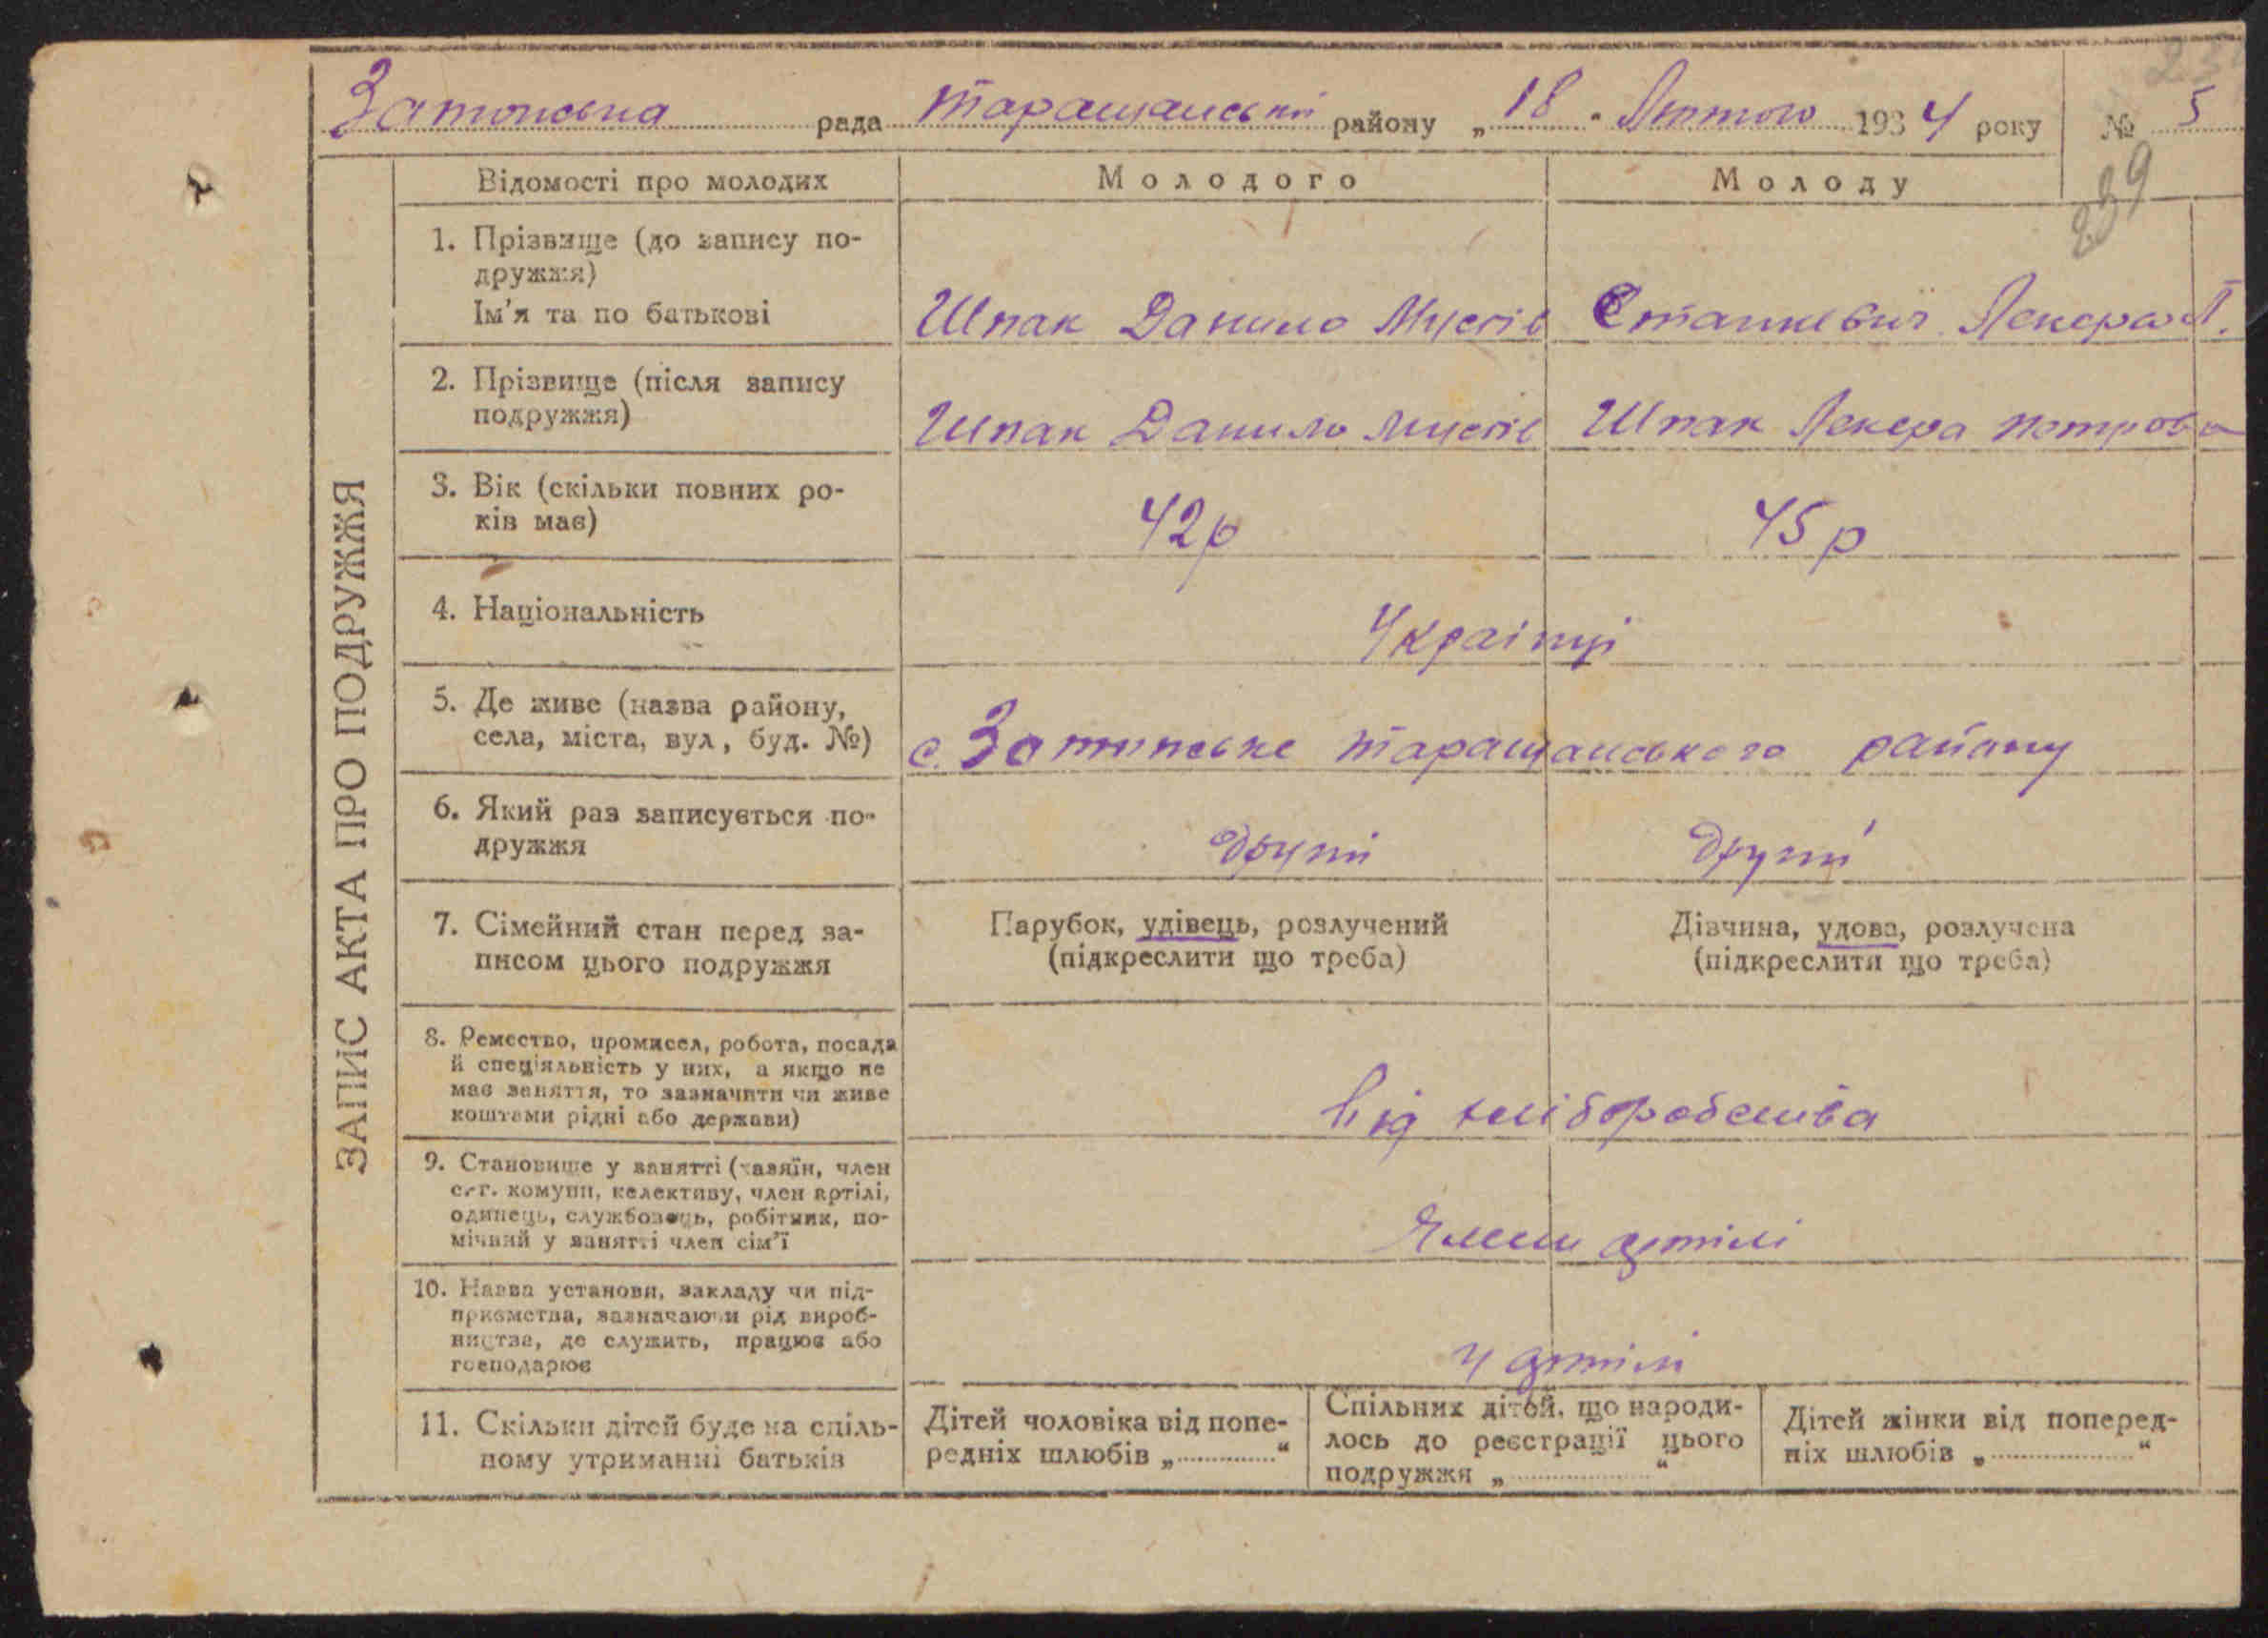 Затонська рада Таращанський району „18“ Лютого 1934 року № 5
239
Відомості про молодих Молодого Молоду
1. Прізвище (до запису по-
дружжя)
Ім'я та по батькові Шпак Данило Мусіїв Станкевич Лекера П.
2. Прізвище (після запису
подружжя) Шпак Данило Мусіїв Шпак Лекера Петрова
3. Вік (скільки повних ро-
ків має) 42р 45р
4. Національність Українці
5. Де живе (назва району,
села, міста, вул, буд. №) с. Затонське Таращанського району
6. Який раз записується по-
дружжя
7. Сімейний стан перед за-
писом цього подружжя
Парубок, удівець, розлучений
(підкреслити що треба)
Дівчина, удова, розлучена
(підкреслити що треба)
8. Ремество, промисел, робота, посада
й спеціяльність у них, а якщо не
має заняття, то зазначити чи живе
коштами рідні або держави) від хліборобства
9. Становище у занятті (хазяїн, член
с.-г. комуни, колективу, член артілі,
одинець, службовець, робітник, по-
мічний у занятті член сім'ї Члени артілі
10. Назва установи, закладу чи під-
приємства, зазначаючи рід вироб-
ництва, де служить, працює або
господарює У артілі
11. Скільки дітей буде на спіль-
ному утриманні батьків
Дітей чоловіка від попе-
редніх шлюбів „ “
Спільних дітей, що народи-
лось до реєстрації цього
подружжя „ “
Дітей жінки від поперед-
ніх шлюбів „ “
ЗАПИС АКТА ПРО ПОДРУЖЖЯ